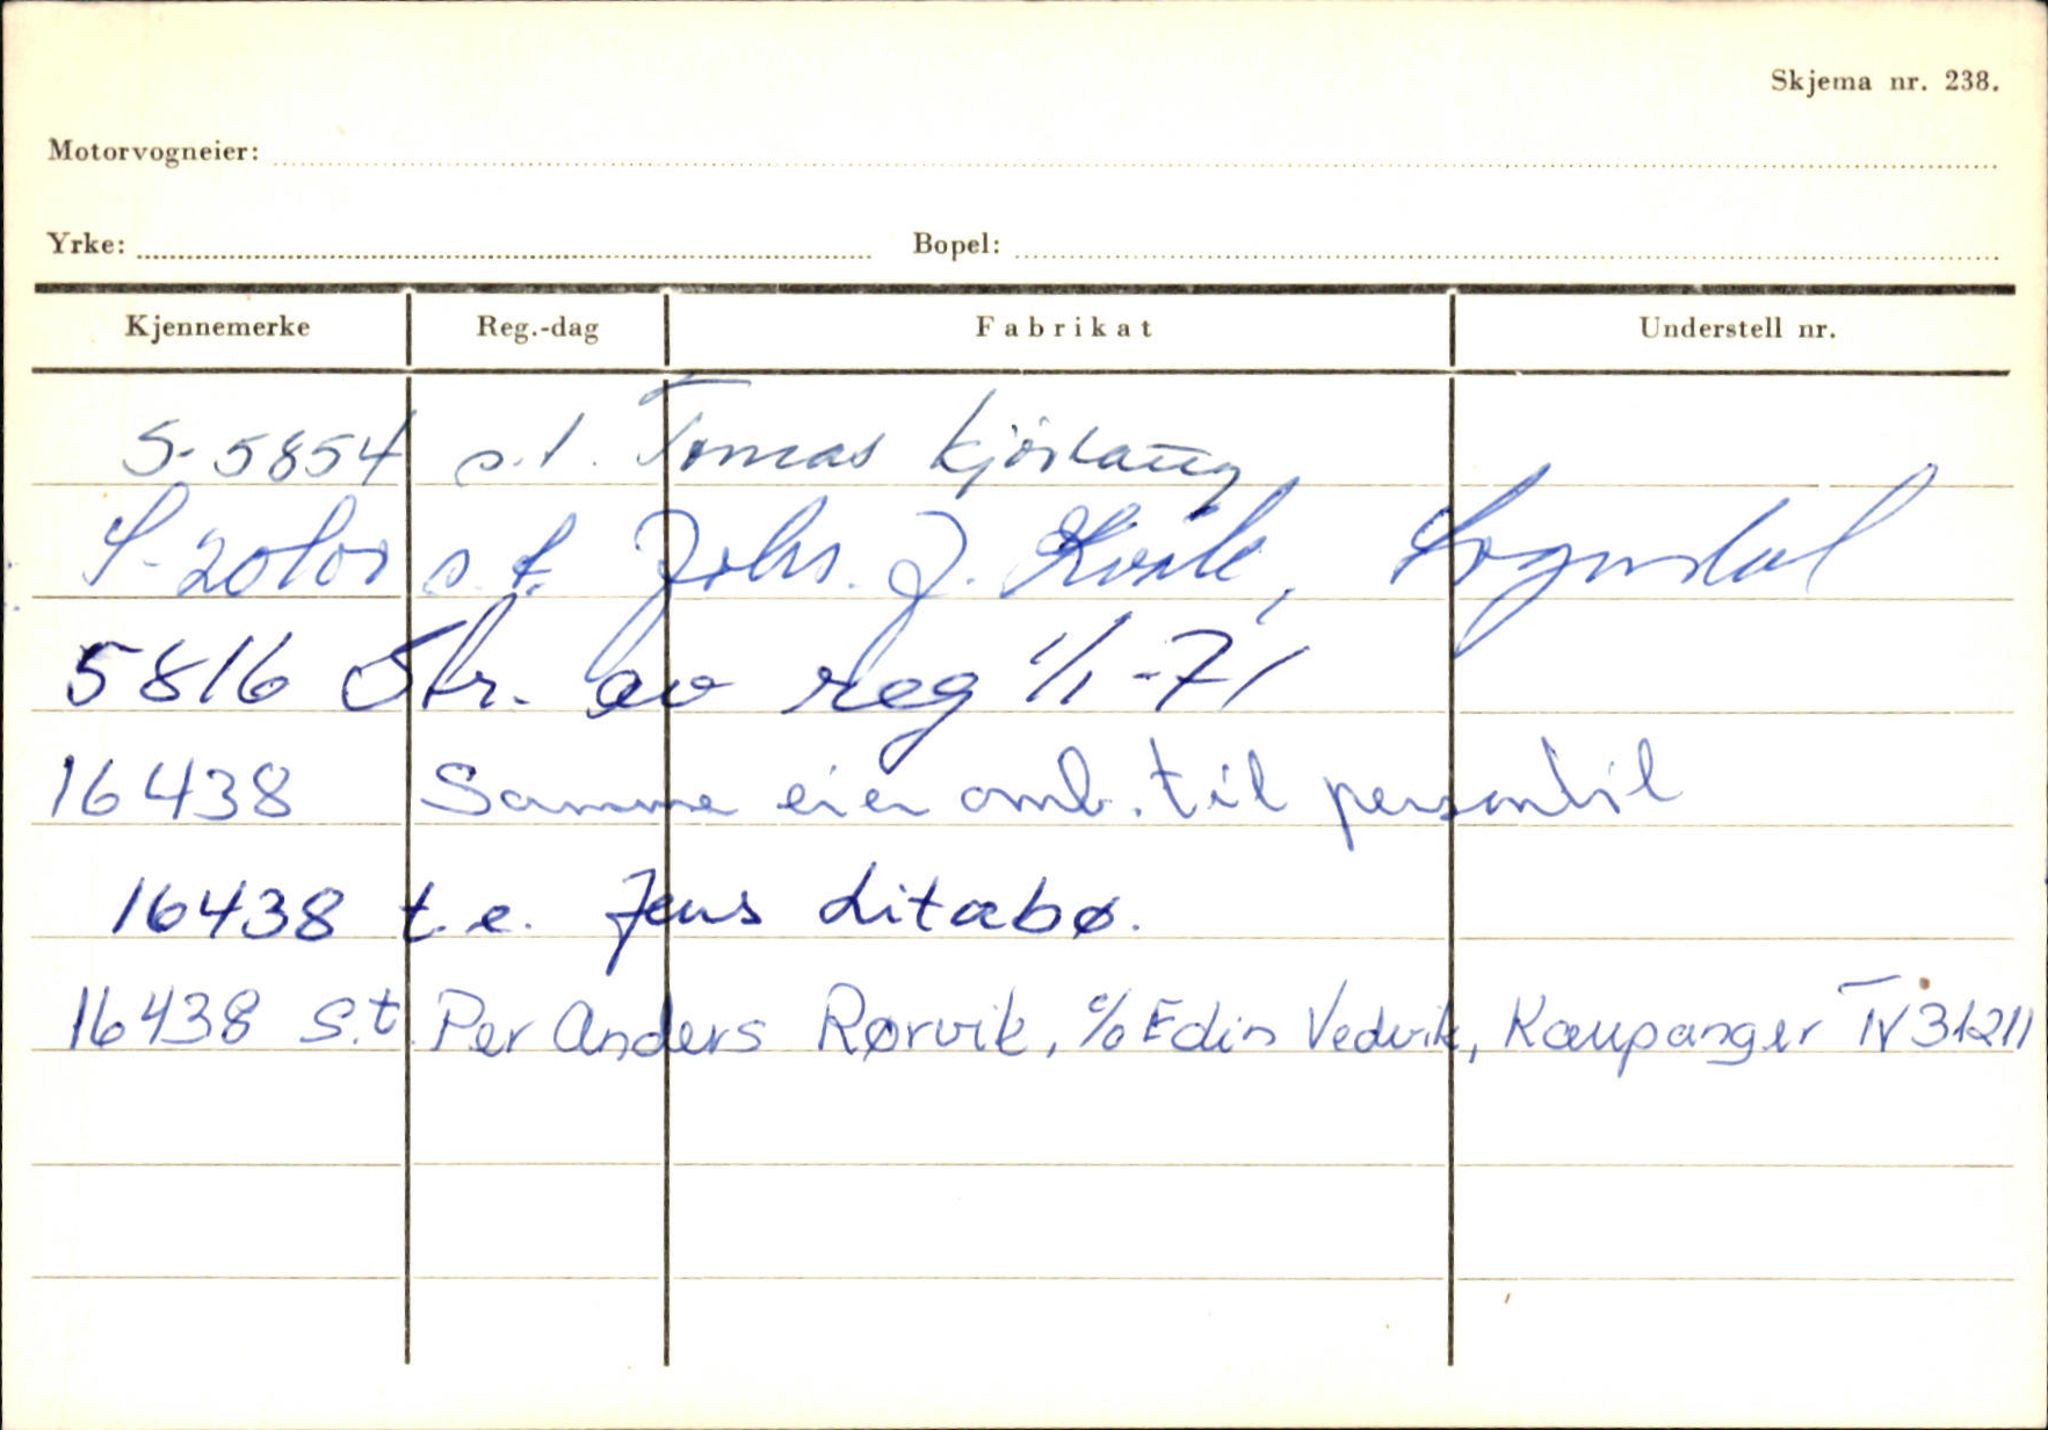 Skjema nr. 238.
Motorvogneier:
Yrke: Bopel:
Kjennemerke Reg.-dag Fabrikat Understell nr.
S-5854 s.t. Tomas
s.t. Johs. J. Kvåle, Sogndal
5816 Str. av reg 1/1-71
16438 Samme eier omb. til personbil
16438 t.e. Jens Litabø.
16438 S.t. Per Anders Rørvik, c/o Edin Vedvik, Kaupanger TV 31211